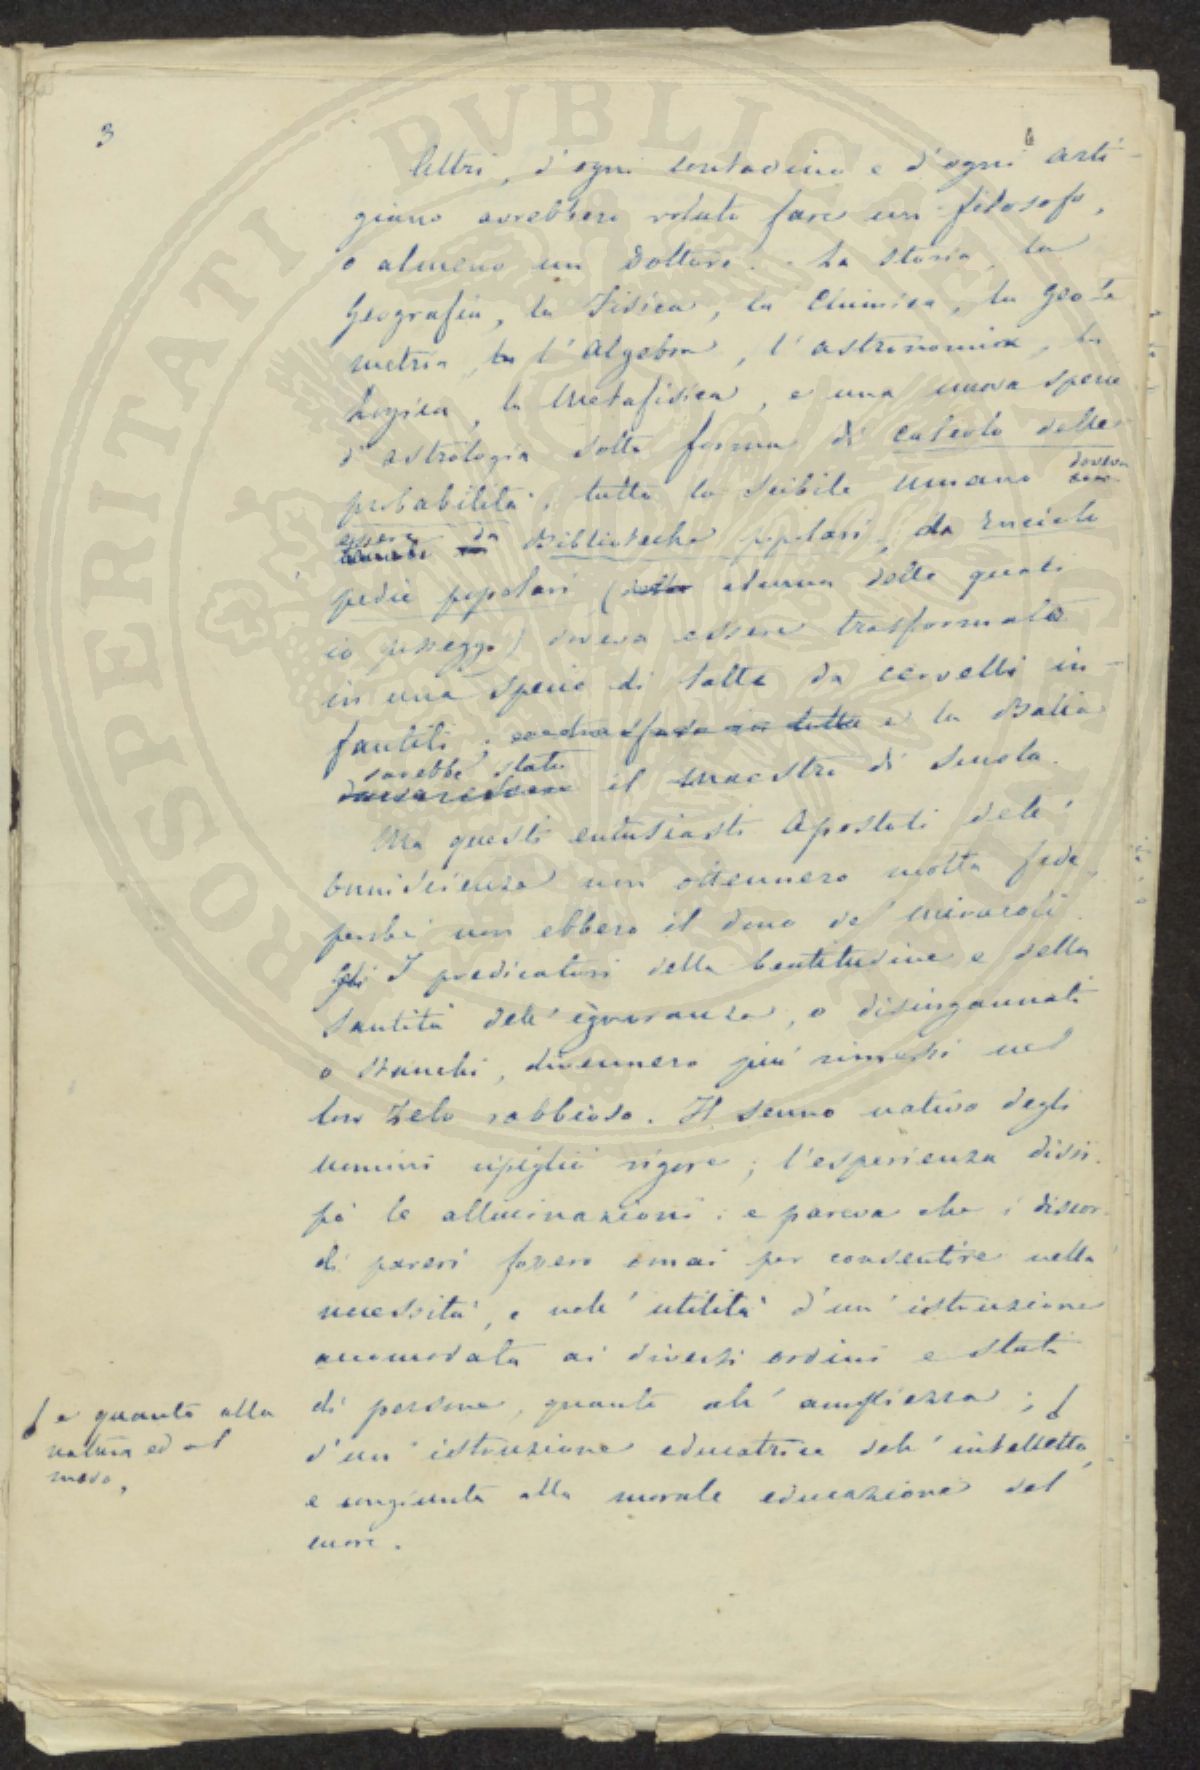 3
Altri, d'ogni contadino e d'ogni arti-
giano avrebbero voluto fare un filosofo,
o almeno un Dottore. - La storia, la
Geografia, la Fisica, la Chimica, la Geo-
metria, la l'Algebra, l'astronomia, la
Logica, la Metafisica, e una nuova specie
d'astrologia sotto forma di calcolo delle
probabilità, tutto lo scibile umano
doveva
essere da
Biblioteche popolari, da Enciclo
pedie popolari ( alcuna delle quali
io posseggo) doveva essere trasformato
in una specie di latte da cervelli in-
fantili, e la Balia
sarebbe stato
il Maestro di Scuola.
Ma questi entusiasti Apostoli dell'
onniscienza non ottennero molta fede,
perchè non ebbero il dono de' miracoli.
Gli I predicatori della beatitudine e della
Santità dell'ignoranza, o disingannati
o stanchi, divennero più rimessi nel
loro zelo rabbioso. Il senno nativo degli
uomini ripigliò vigore; l'esperienza dissi-
pò le allucinazioni: e pareva che i discor-
di pareri fossero omai per consentire nella
necessità, e nell'utilità d'un'istruzione
accomodata ai diversi ordini e stati
di persone, quanto all'ampiezza;
e quanto alla
natura ed al
modo,
d'un'istruzione educatrice dell'intelletto,
e congiunta alla morale educazione del
cuore.
PROSPERITATI PVBLICAE